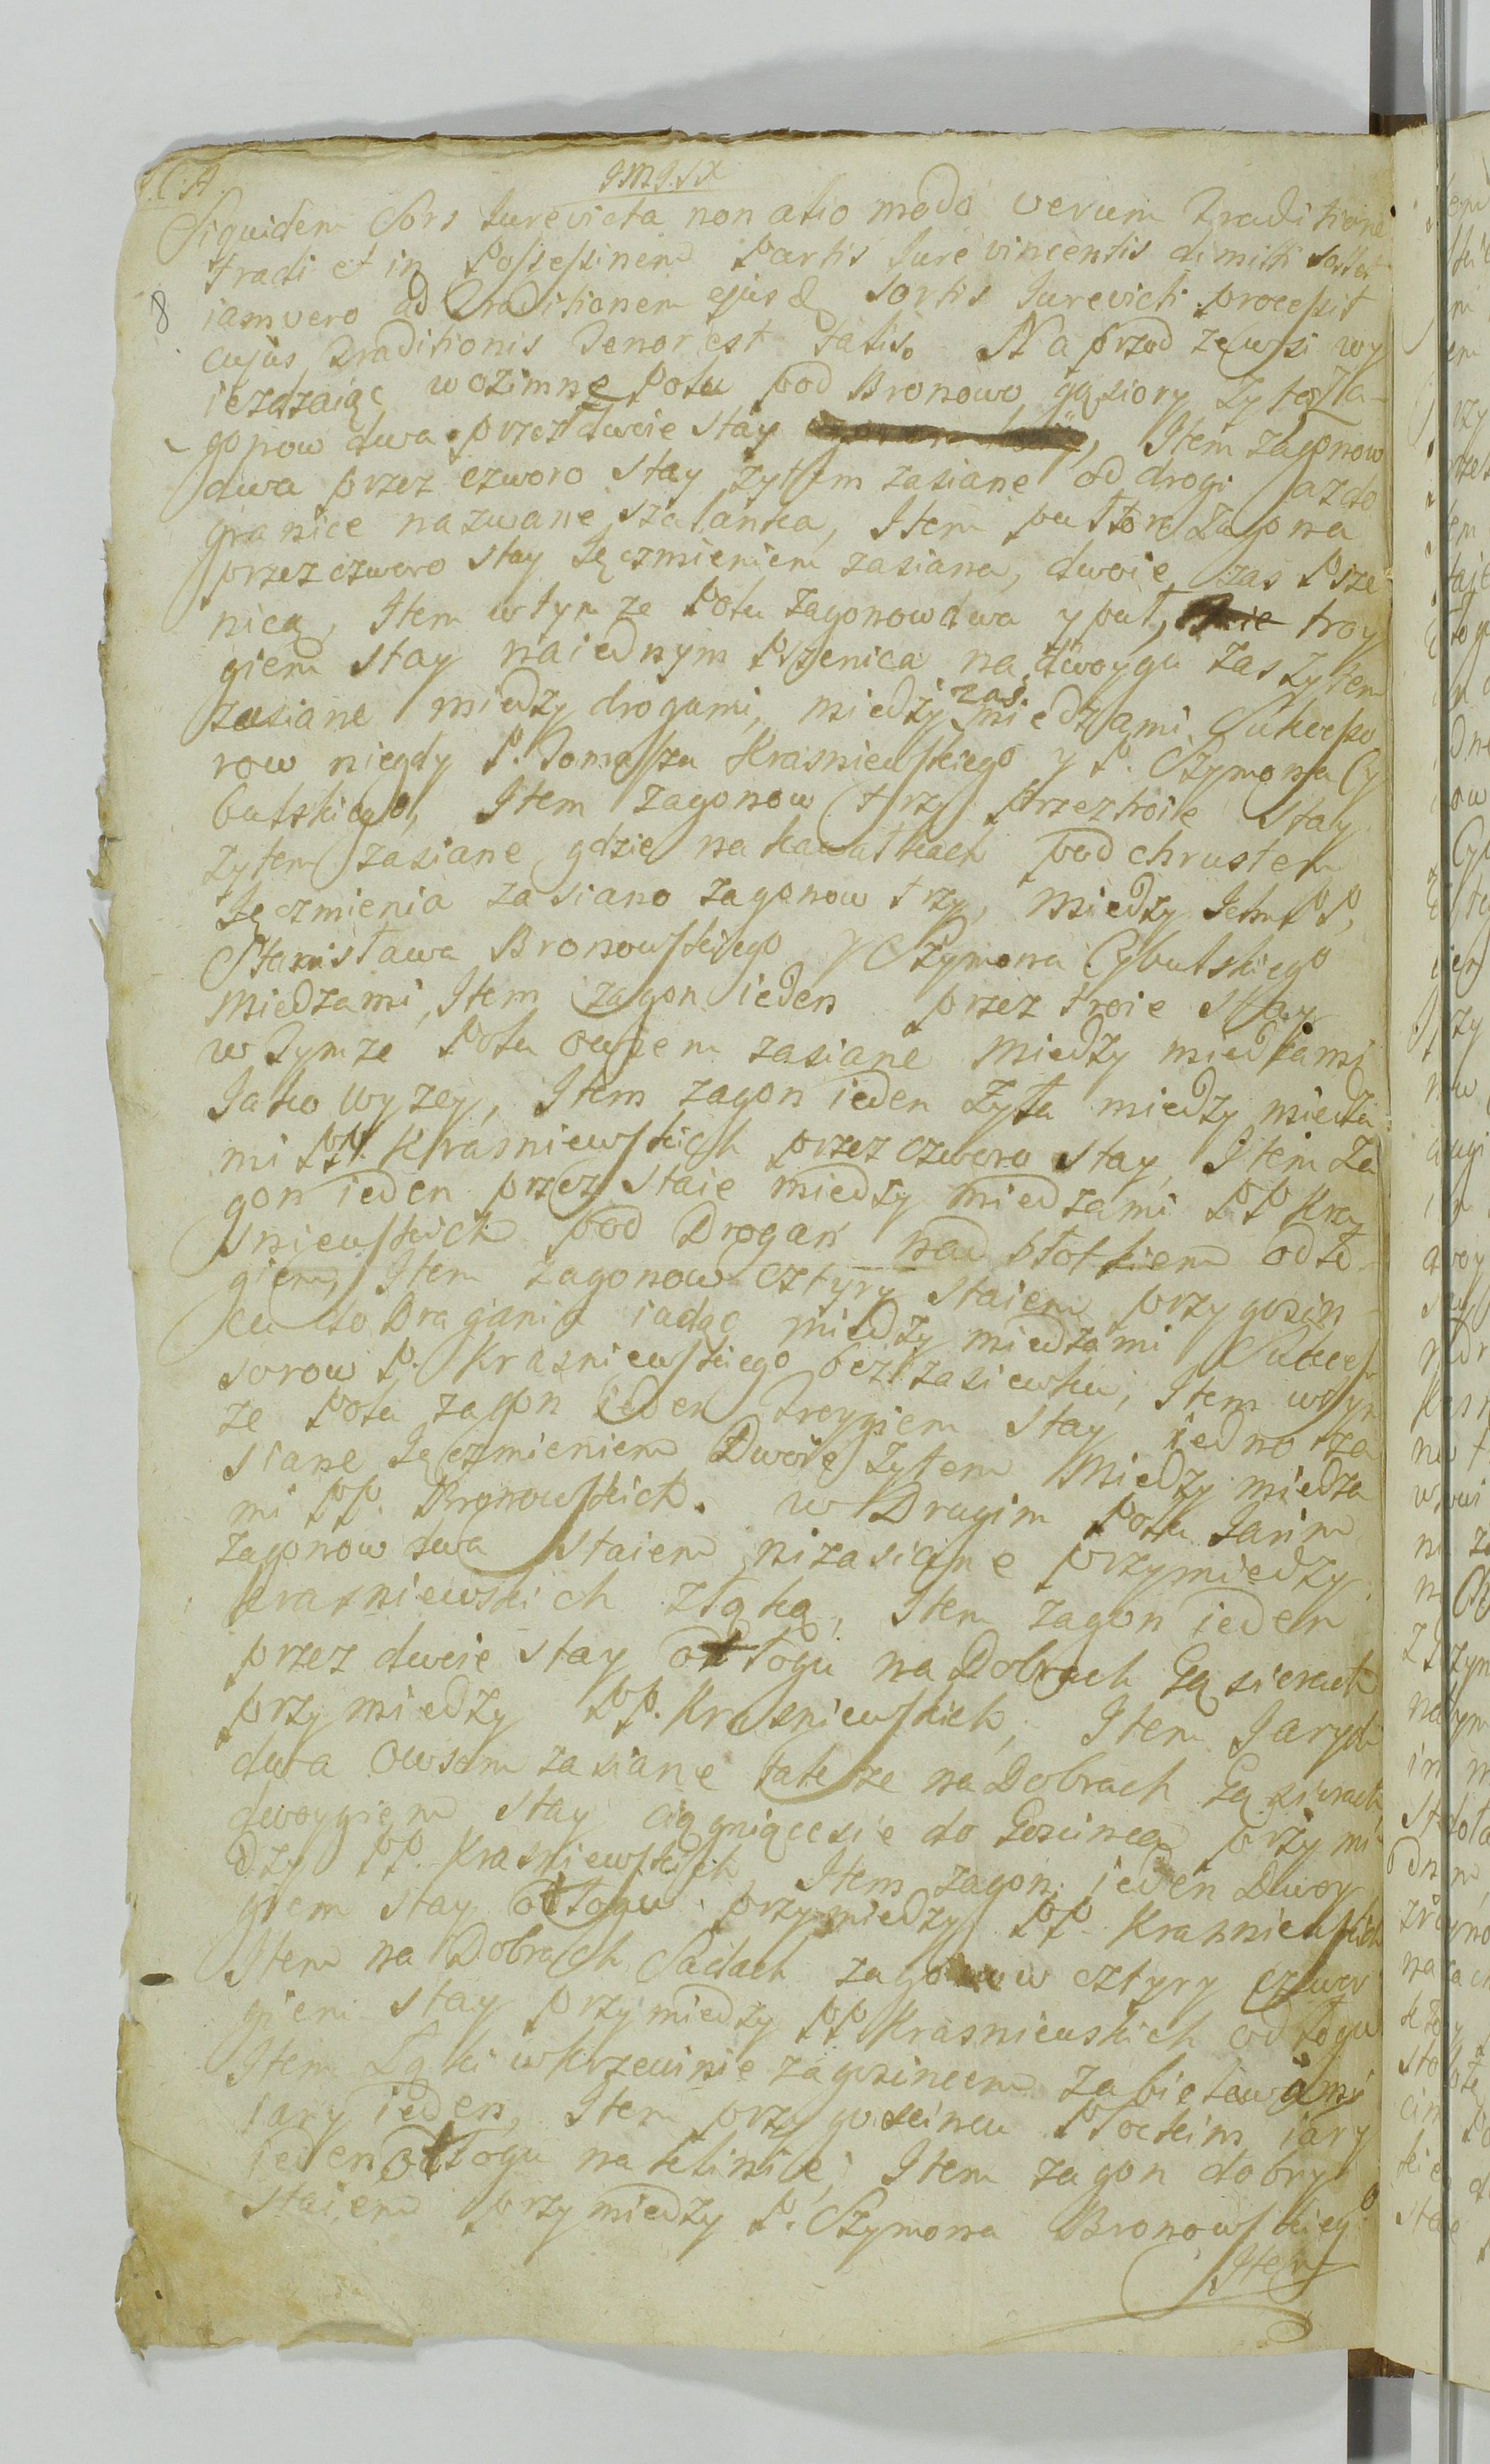 J.M.J.S.X
Siquidem Sors Jurevicta non alio modo verum Traditione
tradi et in Possessinem Partis Jure vincentis dimitti
8
iam vero ad Traditionem ejusd Sortis Jurevicti processit
cujus Traditionis Tenor est talis. Naprzod ze wsi wy
iezdzaiąc wozimne Polu pod Bronowo gąsiory Zyta Za-
gonow dwa przez dwoie stay, Item zagonow
dwa przez czworo stay zytem zasiane od drogi az do
granice nazwane szalanka, Item puttora Zagona
przez czworo stay Jęczmieniem zasiana, dwoie zas Psze
nicą, Item wtym ze Polu Zagonow dwa y puł, troy
giem stay naiednym Pszenica na dwoygu zas zytem
zasiane miedzy drogami, miedzy zas miedzami Sukcesso
row niegdy P. Tomasza Krasniewskiego y P. Szymona Cy
bulskiego, Item Zagonow trzy przez troie stay
zytem zasiane gdzie na kawałkach pod chrustem
Jęczmienia zasiano zagonow trzy, miedzy Ichm PP,
Stanisława Bronowskiego y Szymona Cybulskiego
miedzami, Item zagon ieden przez troie stay
w Tymze Polu owsem zasiane miedzy miedzami
Jako wyzey, Item zagon ieden Zyta miedzy miedza
mi PP. Krasniewskich przez czworo stay, Item Za
gon ieden przez staie miedzy miedzami PP Kra
sniewskich pod Drogan nad błotkiem odło
giem, Item zagonow cztyry staiem przy goscin
cu do Dragania iadąc miedzy miedzami Sukces
sorow P. Krasniewskiego bez zasiewku, Item wtym
ze Polu zagon ieden Troygiem stay iedno za
siane Jęczmieniem Dwoie Zytem Miedzy miedza
mi PP. Bronowskich. w Drugim Polu Jarim
Zagonow dwa staiem nizasiane przymiedzy
Krasniewskich złąką, Item zagon ieden
przez dwoie stay odłogu na Dobrach Gąsiorach
przymiedzy PP. Krasniewskich, Item Jarych
dwa owsem zasiane takze na Dobrach Gąsiorach
dwoygiem stay ciągniące sie do Goscinca przy mi
dzy PP. Krasniewskich, Item zagon ieden Dwoy
giem stay odłogu przymiedzy PP. Krasniewskich
Item na Dobrach Sadach zagonow cztyry czwor
giem stay przymiedzy PP Krasniewskich odłogu
Item Łąki wkrzewinie zagoscincem zabielawami
iary ieden, Item przy goscincu Płockim iary
ieden odłogu na klinike, Item zagon dobry
staiem przymiedzy P. Szymona Bronowskiego
Item